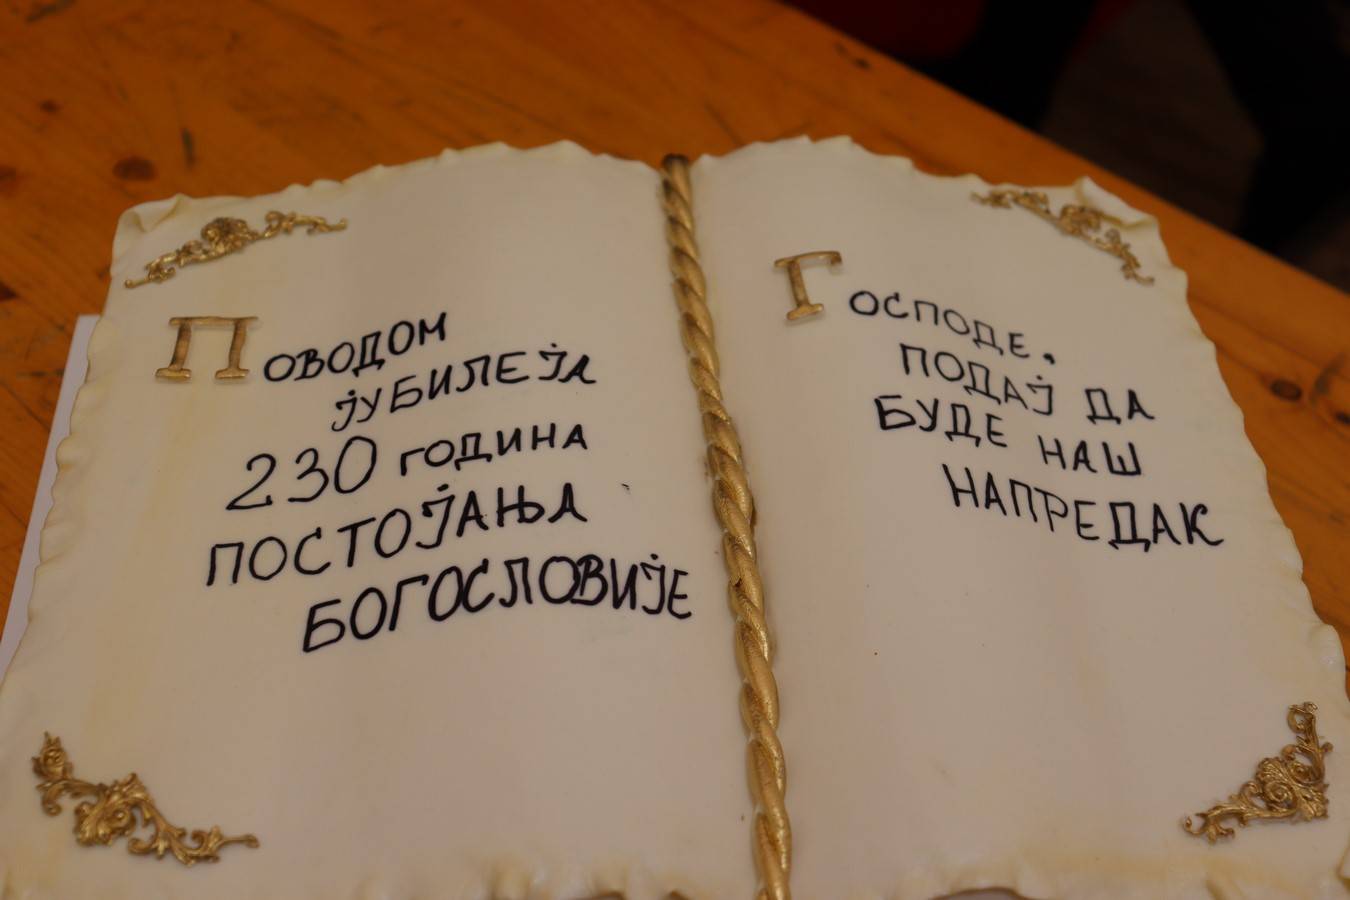 Поводом
јубилеја
230 година
постојања
Богословије
Господе,
подај да
буде наш
напредак